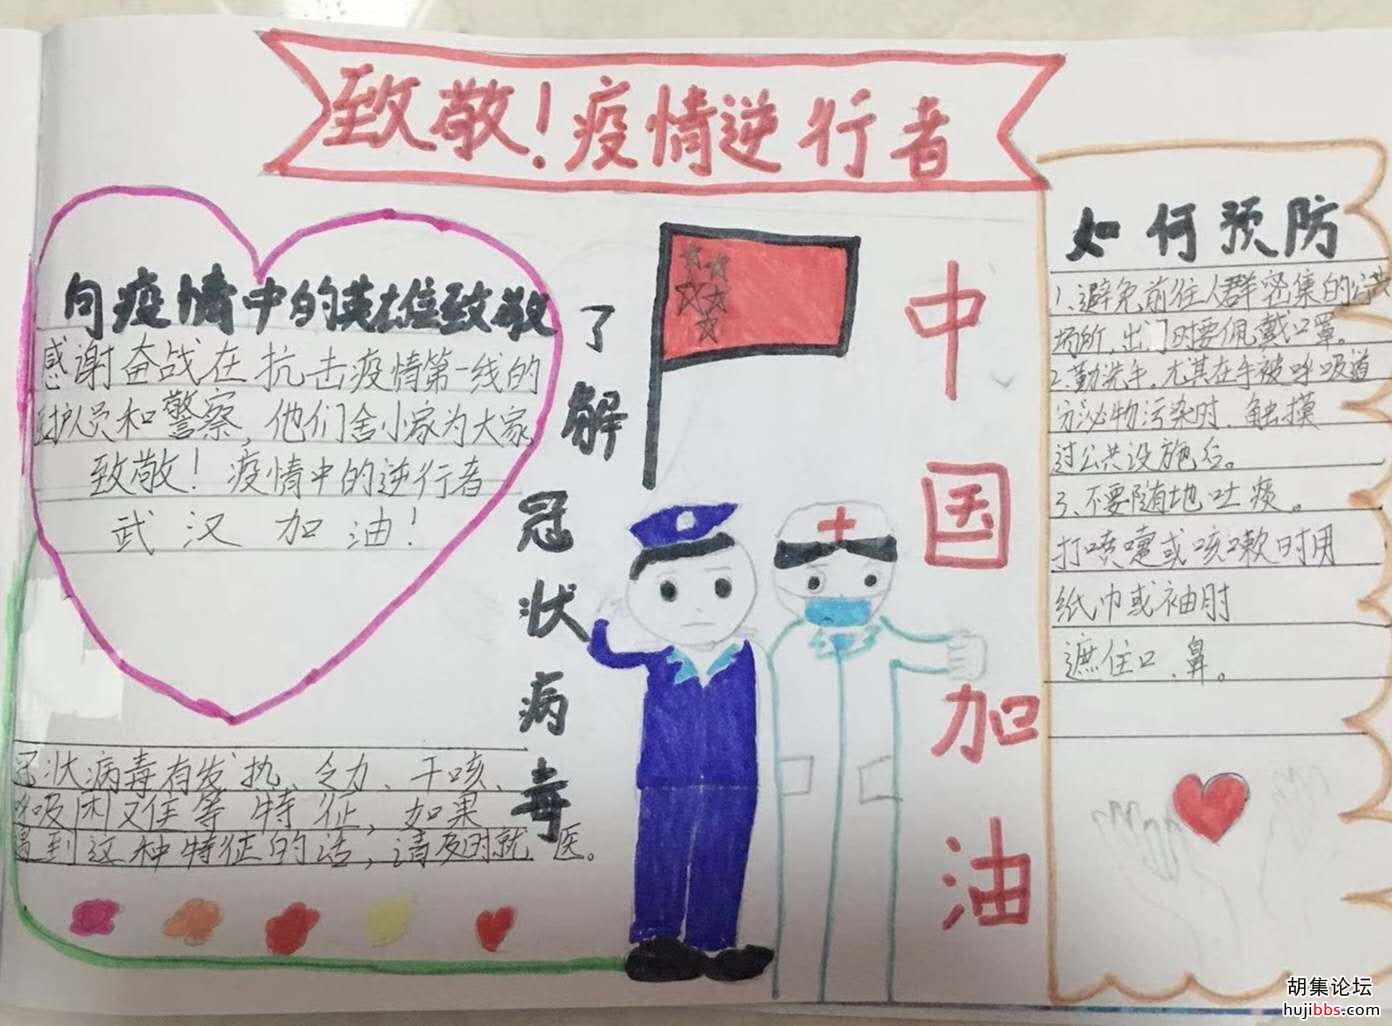 致敬！疫情逆行者
向疫情中的英雄致敬
感谢奋战在抗击疫情第一线的
医护人员和警察，他们舍小家为大家，
致敬！疫情中的逆行者
武汉加油！
了解冠状病毒
冠状病毒有发执、乏力、干咳、
呼吸困难等特征，如果
遇到这种特征的话，请及时就医。
中国加油
如何预防
1、避免前往人群密集的公共
场所，出门时要佩戴口罩。
2、勤洗手，尤其在手被呼吸道
分泌物污染时、触摸
过公共设施后。
3、不要随地吐痰。
打喷嚏或咳嗽时用
纸巾或袖肘
遮住口、鼻。
胡集论坛
hujibbs.com